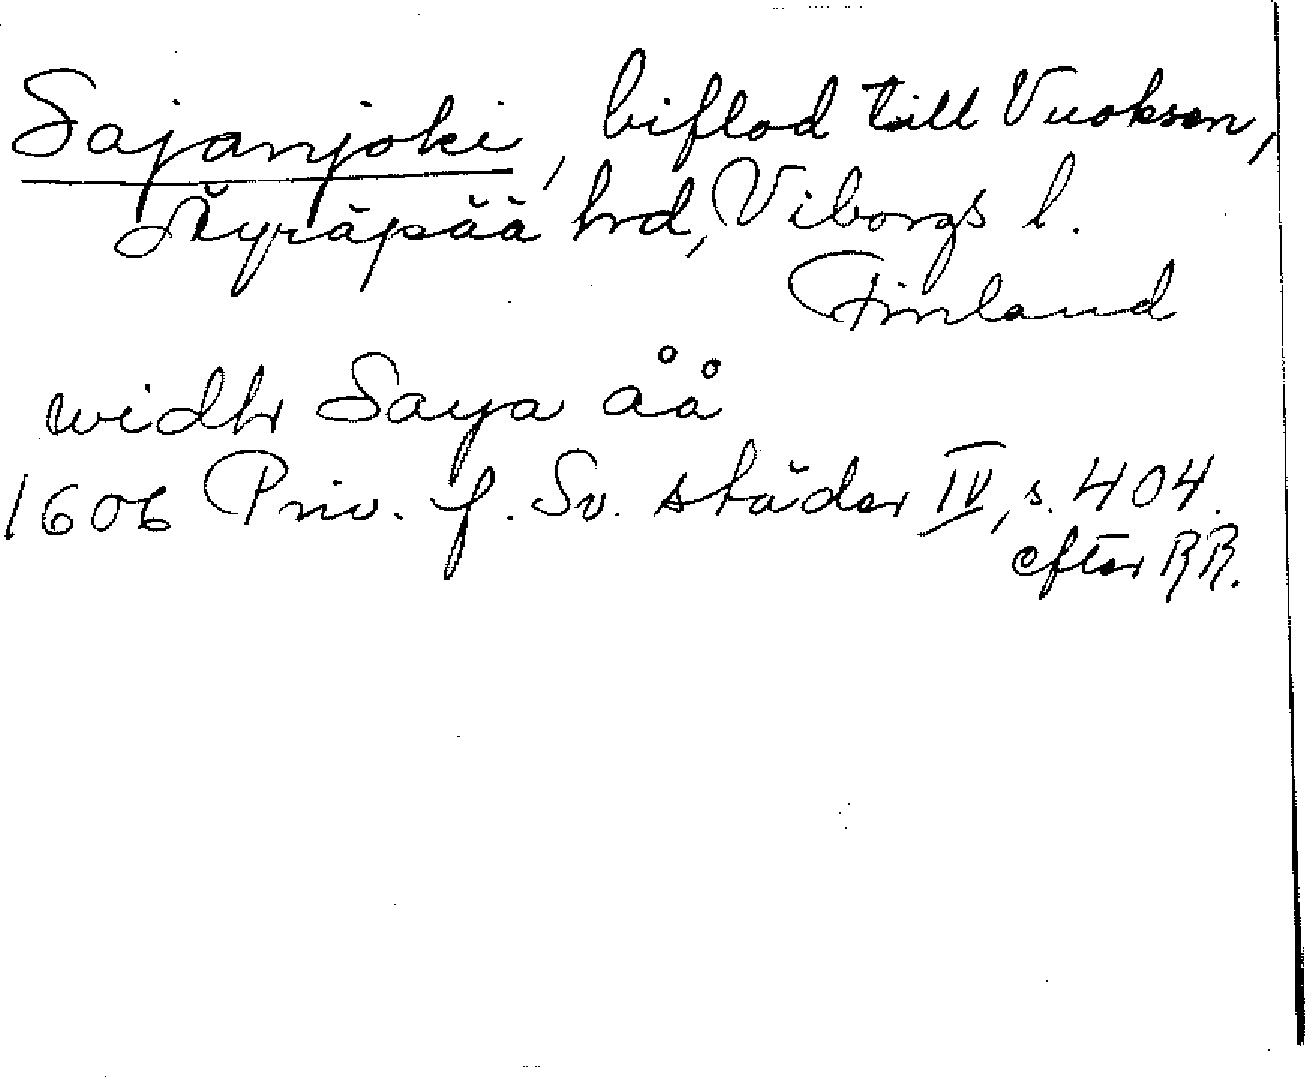 Sajanjoki, biflod till Vuoksen,
Äyräpää hrd, Viborgs l.
Finland
widh Saya åå
1606 Priv. f. Sv. städer IV, s. 404.
efter RR.